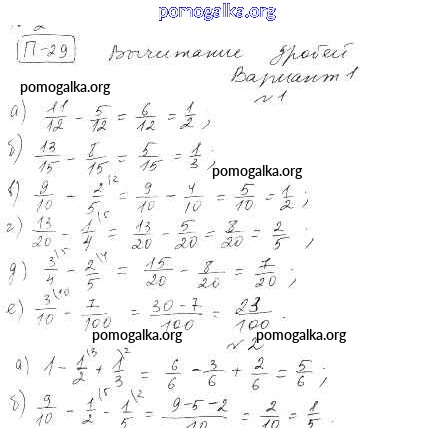 pomogalka.org
П-29 Вычитание дробей
Вариант 1
pomogalka.org
№1
а) 11/12 - 5/12 = 6/12 = 1/2;
б) 13/15 - 8/15 = 5/15 = 1/3;
pomogalka.org
в) 9/10 - 2/5\2 = 9/10 - 4/10 = 5/10 = 1/2;
г) 13/20 - 1/4\5 = 13/20 - 5/20 = 8/20 = 2/5;
д) 3/4\5 - 2/5\4 = 15/20 - 8/20 = 7/20;
е) 3/10\10 - 7/100 = 30-7/100 = 23/100.
pomogalka.org pomogalka.org
№2
а) 1 - 1/2\3 + 1/3\2 = 6/6 - 3/6 + 2/6 = 5/6;
б) 9/10 - 1/2\5 - 1/5\2 = 9-5-2/10 = 2/10 = 1/5.